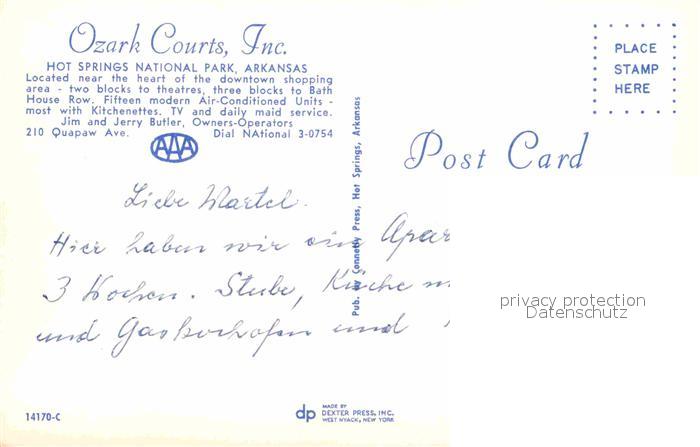 Ozark Courts, Inc.
HOT SPRINGS NATIONAL PARK, ARKANSAS
Located near the heart of the downtown shopping
area - two blocks to theatres, three blocks to Bath
House Row. Fifteen modern Air-Conditioned Units -
most with Kitchenettes. TV and daily maid service.
Jim and Jerry Butler, Owners-Operators
210 Quapaw Ave. Dial NAtional 3-0754
AAA
PLACE
STAMP
HERE
Post Card
Pub. by Connelly Press, Hot Springs, Arkansas
Liebe
Hier haben wir ein Apar
3 Wochen. Stube, Küche
und Gaskochofen und
privacy protection
Datenschutz
14170-C
dp
MADE BY
DEXTER PRESS, INC.
WEST NYACK, NEW YORK